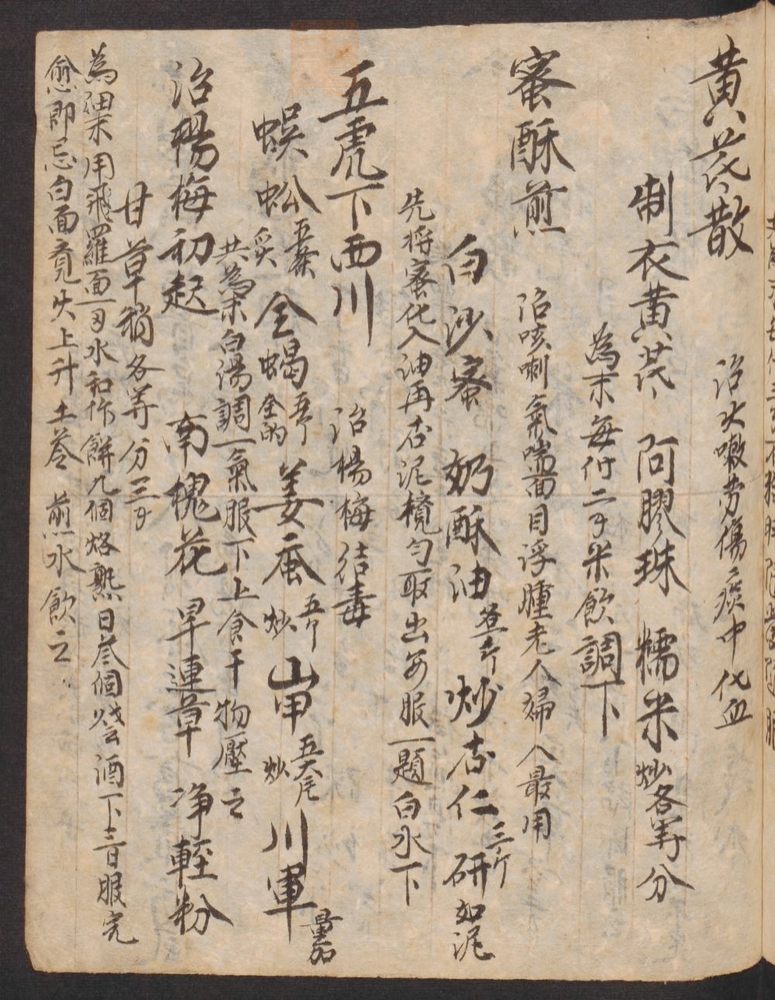 黄芪散 治火嗽劳傷痰中代血
制衣黄芪 阿膠珠 糯米炒各等分
為末每付二刄米飲調下
蜜酥煎 治咳喇氣喘面目浮腫老人婦人最用
白沙蜜 奶酥油 壹斤 炒杏仁 三斤 研如泥
先將蜜化入油再杏泥攪勻取出每服一題白水下
五虎下西川 治楊梅结毒
蜈蚣 五条 炙 全蝎 全的 姜蚕 五个 炒 山甲 五大片 炒 川軍 量加
共為末白湯調一氣服下上食干物壓之
治楊梅初起 南槐花 旱連草 净輕粉
甘草稍各等分三刄
為細末用飛羅面一刄水和作餅九個烙熟日叁個燒酒下三日服完
愈即忌白面竟火上升土苓煎水飲之